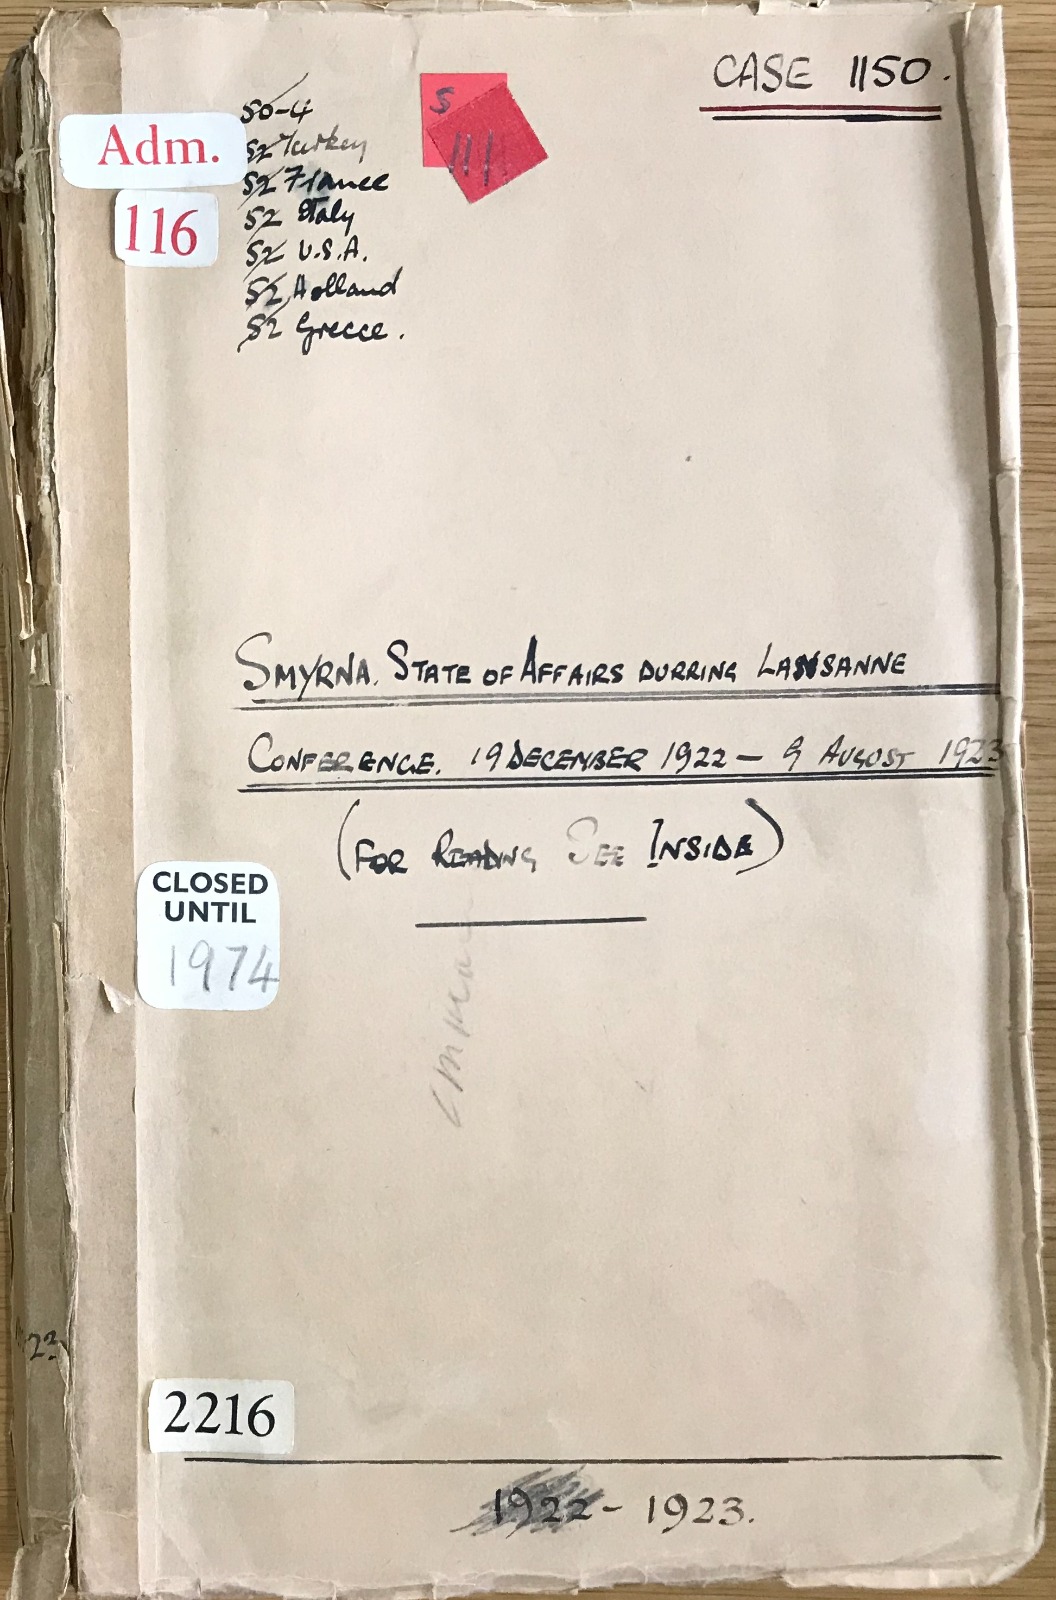 CASE 1150.
50-4
52 Turkey
52 France
52 Italy
52 U.S.A.
52 Holland
52 Greece.
S
Adm.
116
SMYRNA. STATE OF AFFAIRS DURRING LAUSANNE
CONFERENCE. 19 DECEMBER 1922 — 9 AUGUST 1923
(FOR READING SEE INSIDE)
CLOSED
UNTIL
1974
2216
1922 - 1923.